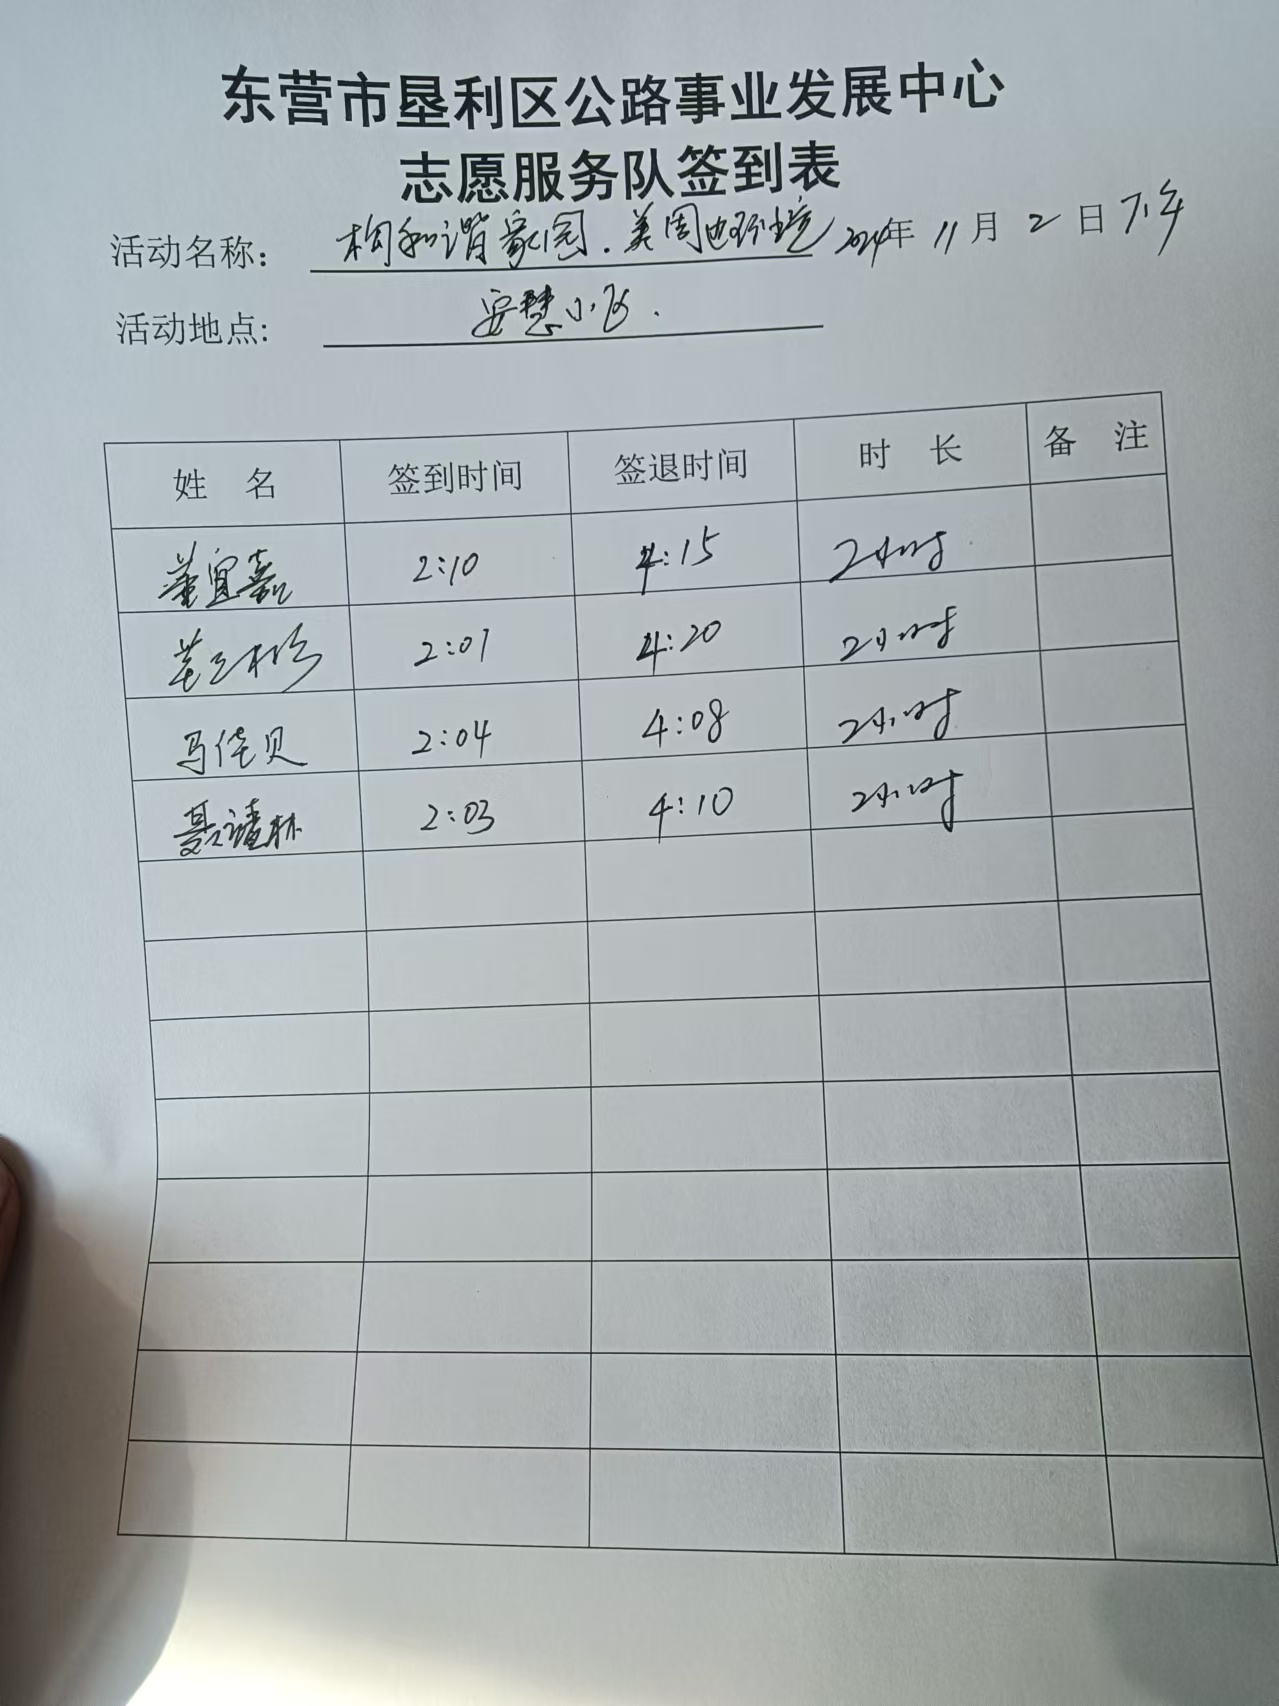 东营市垦利区公路事业发展中心
志愿服务队签到表
活动名称： 构和谐家园．美周边环境 2024年 11月 2日 下午
活动地点: 安慧小区.
姓 名 签到时间 签退时间 时 长 备 注
董宜嘉 2:10 4:15 2小时
2:01 4:20 2小时
马佳贝 2:04 4:08 2小时
聂靖林 2:03 4:10 2小时